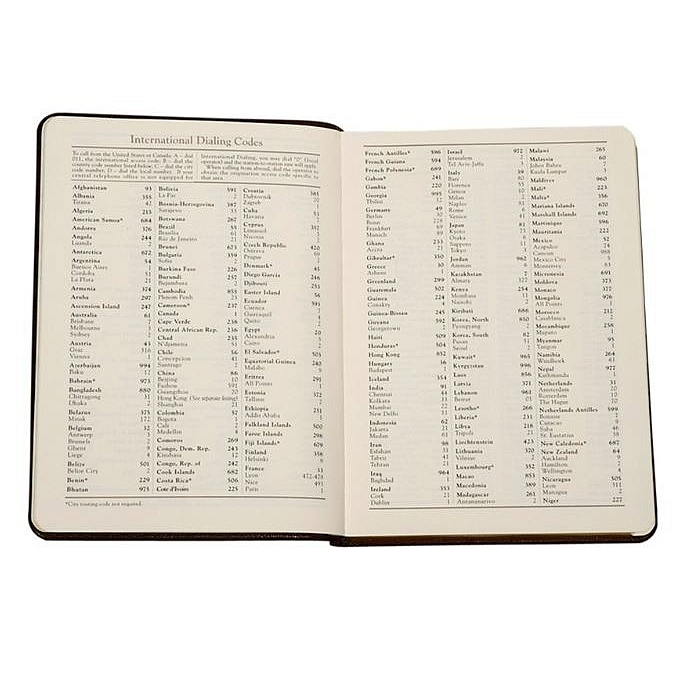 International Dialing Codes
To call from the United States or Canada: A – dial
011, the international access code; B – dial the
country code number listed below; C – dial the city
code number, D – dial the local number. If your
central telephone office is not equipped for
International Dialing, you may dial "0" (local
operator) and the station-to-station rate will apply.
When calling from abroad, dial the operator to
obtain the origination access code specific to
that area.
Afghanistan 93
Albania 355
Tirana 42
Algeria 213
American Samoa* 684
Andorra 376
Angola 244
Luanda 2
Antarctica 672
Argentina 54
Buenos Aires 1
Cordoba 51
La Plata 21
Armenia 374
Aruba 297
Ascension Island 247
Australia 61
Brisbane 7
Melbourne 3
Sydney 2
Austria 43
Graz 316
Vienna 1
Azerbaijan 994
Baku 12
Bahrain* 973
Bangladesh 880
Chittagong 31
Dhaka 2
Belarus 375
Minsk 172
Belgium 32
Antwerp 3
Brussels 2
Ghent 9
Liege 4
Belize 501
Belize City 2
Benin* 229
Bhutan 975
Bolivia 591
La Paz 2
Bosnia-Herzegovina 387
Sarajevo 33
Botswana 267
Brazil 55
Brasilia 61
Rio de Janeiro 21
Brunei 673
Bulgaria 359
Sofia 2
Burkina Faso 226
Burundi 257
Bujumbura 2
Cambodia 855
Phnom Penh 23
Cameroon* 237
Canada 1
Cape Verde 238
Central African Rep. 236
Chad 235
N'djamena 51
Chile 56
Concepcion 41
Santiago 2
China 86
Beijing 10
Fuzhou 591
Guangzhou 20
Hong Kong (See separate listing)
Shanghai 21
Colombia 57
Bogota 1
Cali 2
Medellin 4
Comoros 269
Congo, Dem. Rep. 243
Kinshasa 12
Congo, Rep. of 242
Cook Islands 682
Costa Rica* 506
Cote d'Ivoire 225
Croatia 385
Dubrovnik 20
Zagreb 1
Cuba 53
Havana 7
Cyprus 357
Limassol
Nicosia
Czech Republic 420
Ostrava
Prague
Denmark* 45
Diego Garcia 246
Djibouti 253
Easter Island 56
Ecuador 593
Cuenca 7
Guayaquil 4
Quito 2
Egypt 20
Alexandria 3
Cairo 2
El Salvador* 503
Equatorial Guinea 240
Malabo 9
Eritrea 291
All Points 1
Estonia 372
Tallinn
Ethiopia 251
Addis Ababa 1
Falkland Islands 500
Faroe Islands 298
Fiji Islands* 679
Finland 358
Helsinki 9
France 33
Lyon 472-478
Nice 493
Paris 1
*City routing code not required.
French Antilles* 596
French Guiana 594
French Polynesia* 689
Gabon* 241
Gambia 220
Georgia 995
Tbilisi 32
Germany 49
Berlin 30
Bonn 228
Frankfurt 69
Munich 89
Ghana 233
Accra 21
Gibraltar* 350
Greece 30
Athens 1
Greenland 299
Guatemala 502
Guinea 224
Conakry 4
Guinea-Bissau 245
Guyana 592
Georgetown 2
Haiti 509
Honduras* 504
Hong Kong 852
Hungary 36
Budapest 1
Iceland 354
India 91
Chennai 44
Kolkata 33
Mumbai 22
New Delhi 11
Indonesia 62
Jakarta 21
Medan 61
Iran 98
Esfahan 31
Tabriz 41
Tehran 21
Iraq 964
Baghdad 1
Ireland 353
Cork 21
Dublin 1
Israel 972
Jerusalem 2
Tel Aviv-Jaffa 3
Italy 39
Bari 80
Florence 55
Genoa 10
Milan 2
Naples 81
Rome 6
Venice 41
Japan 81
Kyoto 75
Osaka 6
Sapporo 11
Tokyo 3
Jordan 962
Amman 6
Kazakhstan 7
Almaty 327
Kenya 254
Mombasa 11
Nairobi 2
Kiribati 686
Korea, North 850
Pyongyang 2
Korea, South 82
Pusan 51
Seoul 2
Kuwait* 965
Kyrgyzstan 996
Laos 856
Latvia 371
Lebanon 961
Beirut 1
Lesotho* 266
Liberia* 231
Libya 218
Tripoli 21
Liechtenstein 423
Lithuania 370
Vilnius 2
Luxembourg* 352
Macao 853
Macedonia 389
Madagascar 261
Antananarivo 2
Malawi 265
Malaysia 60
Johor Bahru 7
Kuala Lumpur 3
Maldives 960
Mali* 223
Malta* 356
Mariana Islands 670
Marshall Islands 692
Martinique 596
Mauritania 222
Mexico 52
Acapulco 74
Cancun 988
Mexico City 5
Monterrey 83
Micronesia 691
Moldova 373
Monaco 377
Mongolia 976
All Points 1
Morocco 212
Casablanca 2
Mozambique 258
Maputo 1
Myanmar 95
Yangon 1
Namibia 264
Windhoek 61
Nepal 977
Kathmandu 1
Netherlands 31
Amsterdam 20
Rotterdam 10
The Hague 70
Netherlands Antilles 599
Bonaire 7
Curacao 9
Saba 46
St. Eustatius 38
New Caledonia* 687
New Zealand 64
Auckland 9
Hamilton 7
Wellington 4
Nicaragua 505
Leon 311
Managua 2
Niger 227